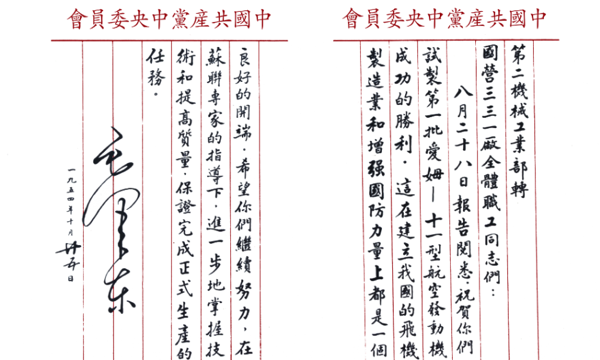 中國共產黨中央委員會
第二機械工業部轉
國營三三一廠全體職工同志們：
八月二十八日報告閱悉。祝賀你們
試製第一批愛姆—十一型航空發動機
成功的勝利。這在建立我國的飛機
製造業和增强國防力量上都是一個
中國共產黨中央委員會
良好的開端。希望你們繼續努力，在
蘇聯專家的指導下，進一步地掌握技
術和提高質量，保證完成正式生產的
任務。
毛澤東
一九五四年十月廿五日